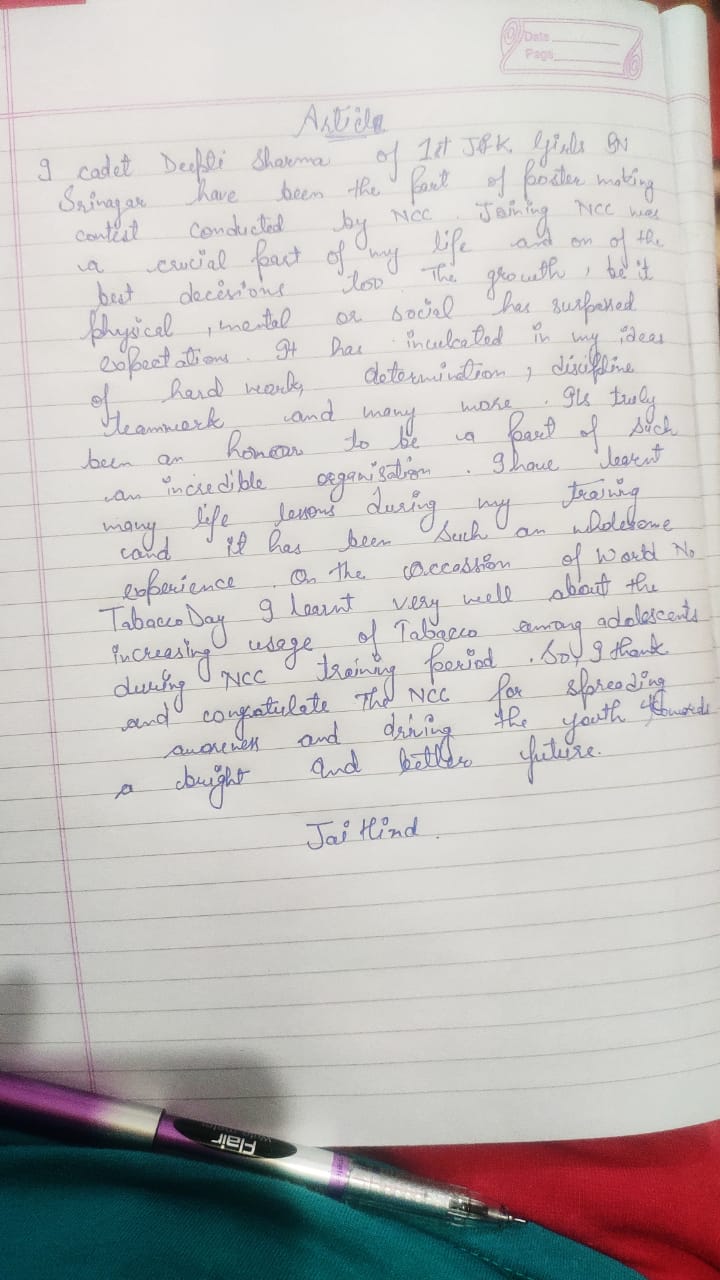 Date
Page
Article
I cadet Deepli Sharma of 1st J&K Girls BN
Srinagar have been the part of poster making
contest conducted by NCC. Joining NCC was
a crucial part of my life and on of the
best decisions too. The growth, be it
physical, mental or social has surpassed
expectations. It has inculcated in my ideas
of hard work, determination, discipline
teamwork and many more. Its truly
been an honour to be a part of such
an incredible organisation. I have learnt
many life lessons during my training
and it has been such an wholesome
experience. On the occassion of World No
Tabacco Day I learnt very well about the
increasing usage of Tabacco among adolescents
during NCC training period. So, I thank
and congratulate The NCC for spreading
awareness and driving the youth towards
a bright and better future.
Jai Hind.
Flair